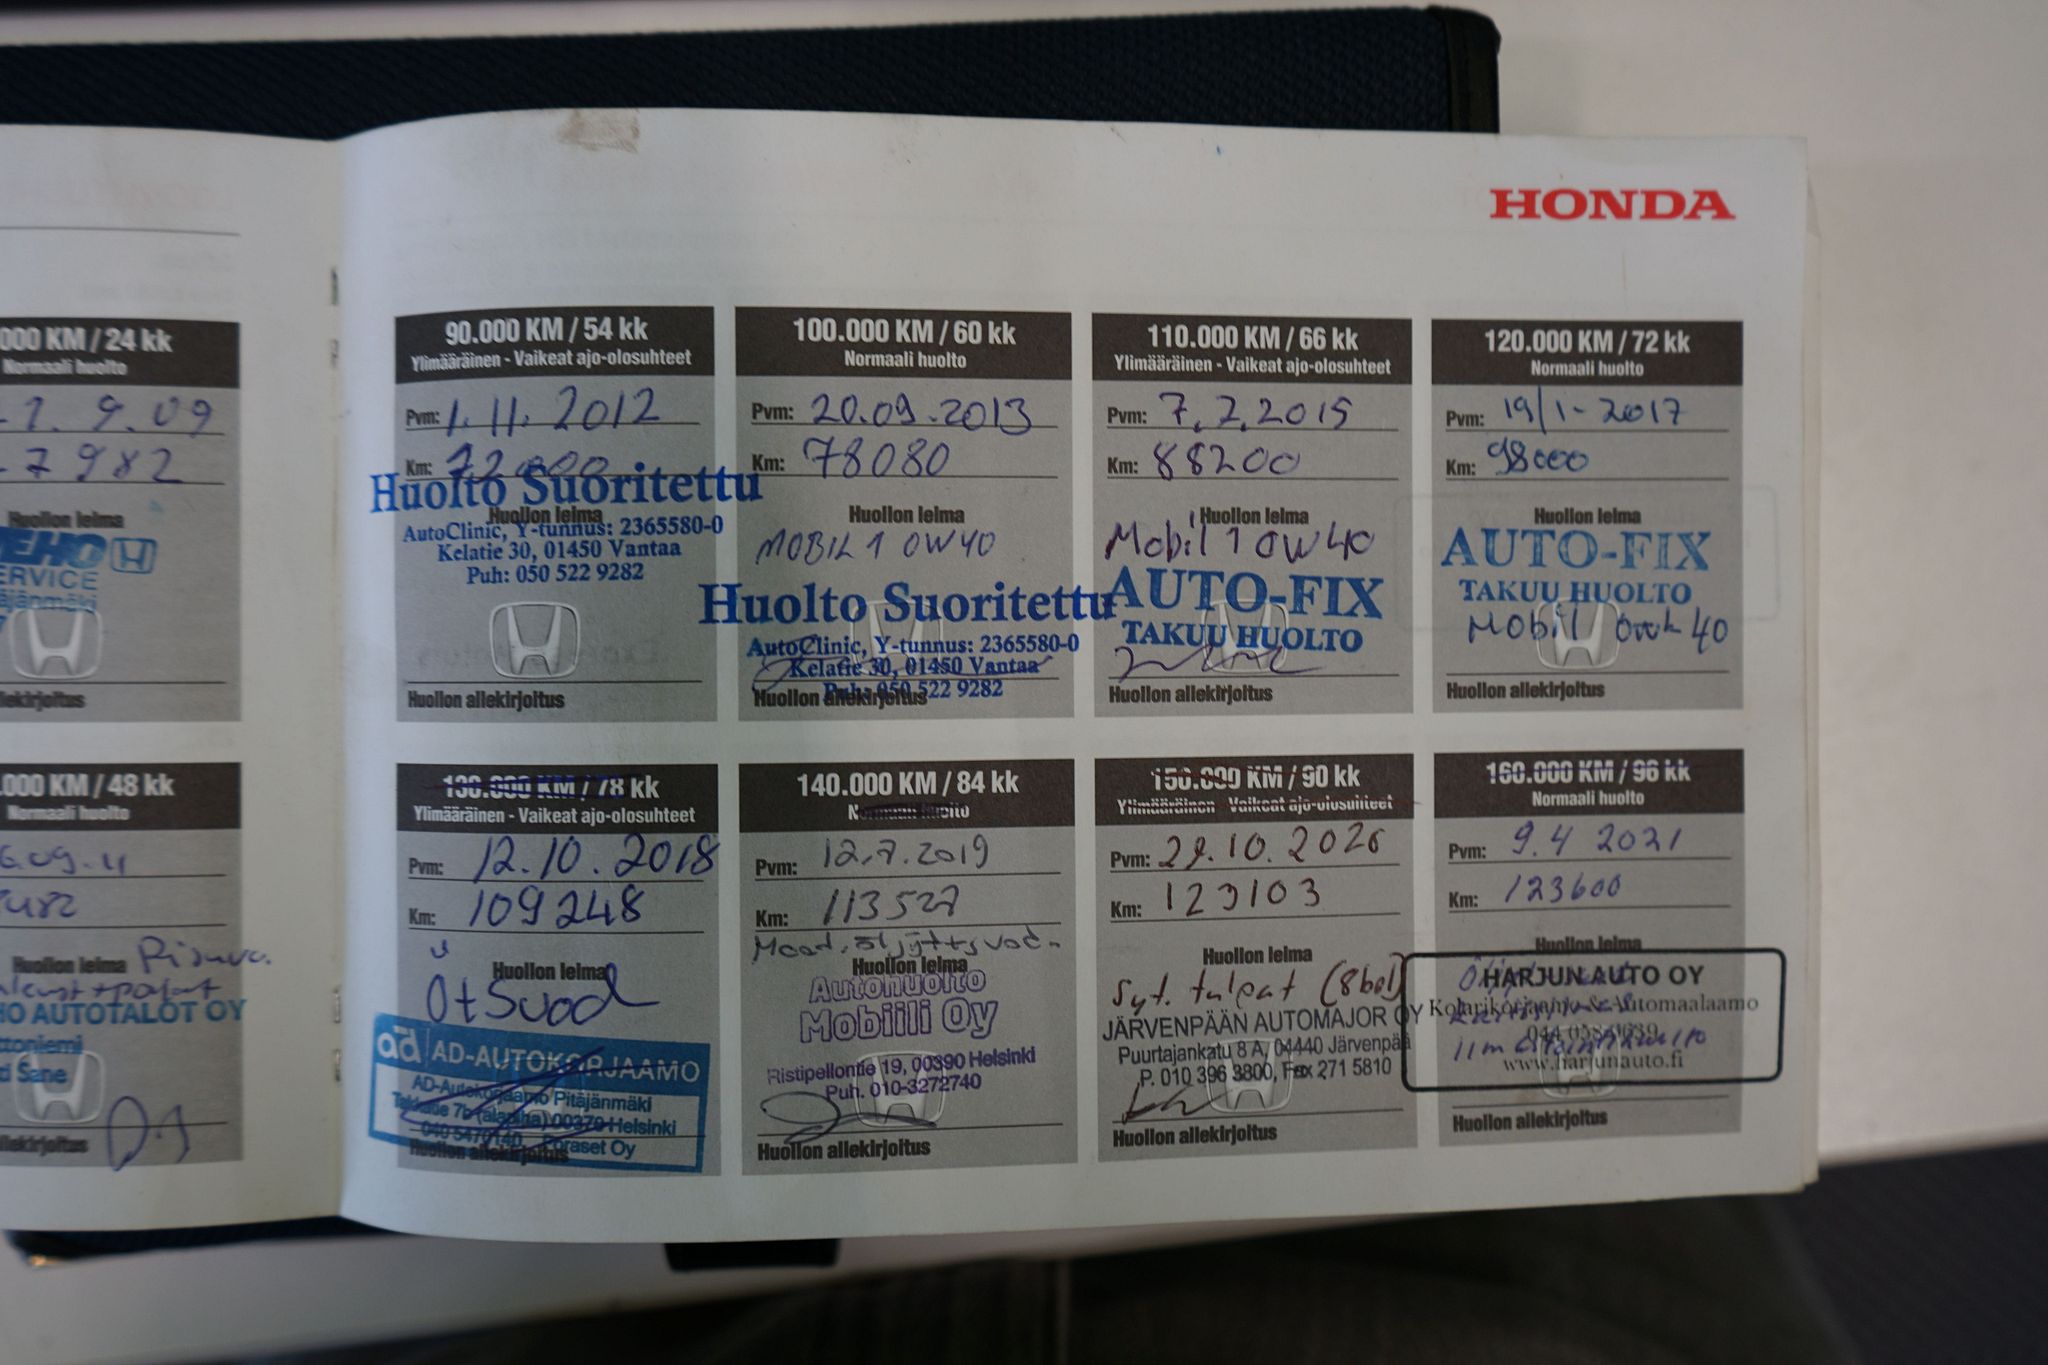 HONDA
000 KM / 24 kk
Normaali huolto
9.09
7982
Huollon leima
EHO
ERVICE
äjänmäki
lekirjoitus
000 KM / 48 kk
Normaali huolto
09.11
482
Huollon leima
HO AUTOTALOT OY
ttoniemi
Sane
lekirjoitus
90.000 KM / 54 kk
Ylimääräinen - Vaikeat ajo-olosuhteet
Pvm: 1.11.2012
Km: 72000
Huollon leima
Huolto Suoritettu
AutoClinic, Y-tunnus: 2365580-0
Kelatie 30, 01450 Vantaa
Puh: 050 522 9282
Huollon allekirjoitus
100.000 KM / 60 kk
Normaali huolto
Pvm: 20.09.2013
Km: 78080
Huollon leima
MOBIL 1 0W40
Huolto Suoritettu
AutoClinic, Y-tunnus: 2365580-0
Kelatie 30, 01450 Vantaa
Puh: 050 522 9282
Huollon allekirjoitus
110.000 KM / 66 kk
Ylimääräinen - Vaikeat ajo-olosuhteet
Pvm: 7.2.2015
Km: 88200
Huollon leima
Mobil 1 0W40
AUTO-FIX
TAKUU HUOLTO
Huollon allekirjoitus
120.000 KM / 72 kk
Normaali huolto
Pvm: 19/1-2017
Km: 98000
Huollon leima
AUTO-FIX
TAKUU HUOLTO
Mobil 40
Huollon allekirjoitus
130.000 KM / 78 kk
Ylimääräinen - Vaikeat ajo-olosuhteet
Pvm: 12.10.2018
Km: 109248
Huollon leima
Öt Suod
ad AD-AUTOKORJAAMO
AD-Autokorjaamo Pitäjänmäki
Takkatie 7b (alapiha) 00370 Helsinki
040 5470140 Foraset Oy
Huollon allekirjoitus
140.000 KM / 84 kk
Normaali huolto
Pvm: 12.7.2019
Km: 113527
Huollon leima
Autohuolto
Mobiili Oy
Ristipellontie 19, 00390 Helsinki
Puh. 010-3272740
Huollon allekirjoitus
150.000 KM / 90 kk
Ylimääräinen - Vaikeat ajo-olosuhteet
Pvm: 29.10.2020
Km: 123103
Huollon leima
Syt. tulpat (8kpl)
JÄRVENPÄÄN AUTOMAJOR OY
Puurtajankatu 8 A, 04440 Järvenpää
P. 010 396 3800, Fax 271 5810
Huollon allekirjoitus
160.000 KM / 96 kk
Normaali huolto
Pvm: 9.4 2021
Km: 123600
Huollon leima
HARJUN AUTO OY
Kolarikorjaamo & Automaalaamo
www.harjunauto.fi
Huollon allekirjoitus